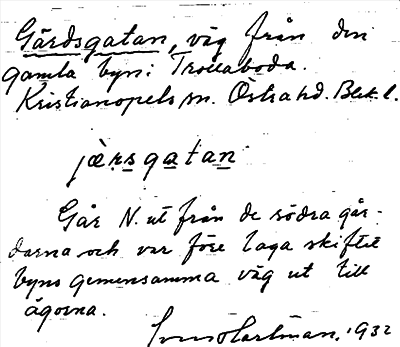 Gärdsgatan, väg från den
gamla byn i Trollaboda.
Kristianopels sn. Östra hd. Blek. l.
jæ̀ṛsgatan
Går N. ut från de södra går-
darna och var före laga skiftet
byns gemensamma väg ut till
ägorna.
Sven Hartman. 1932